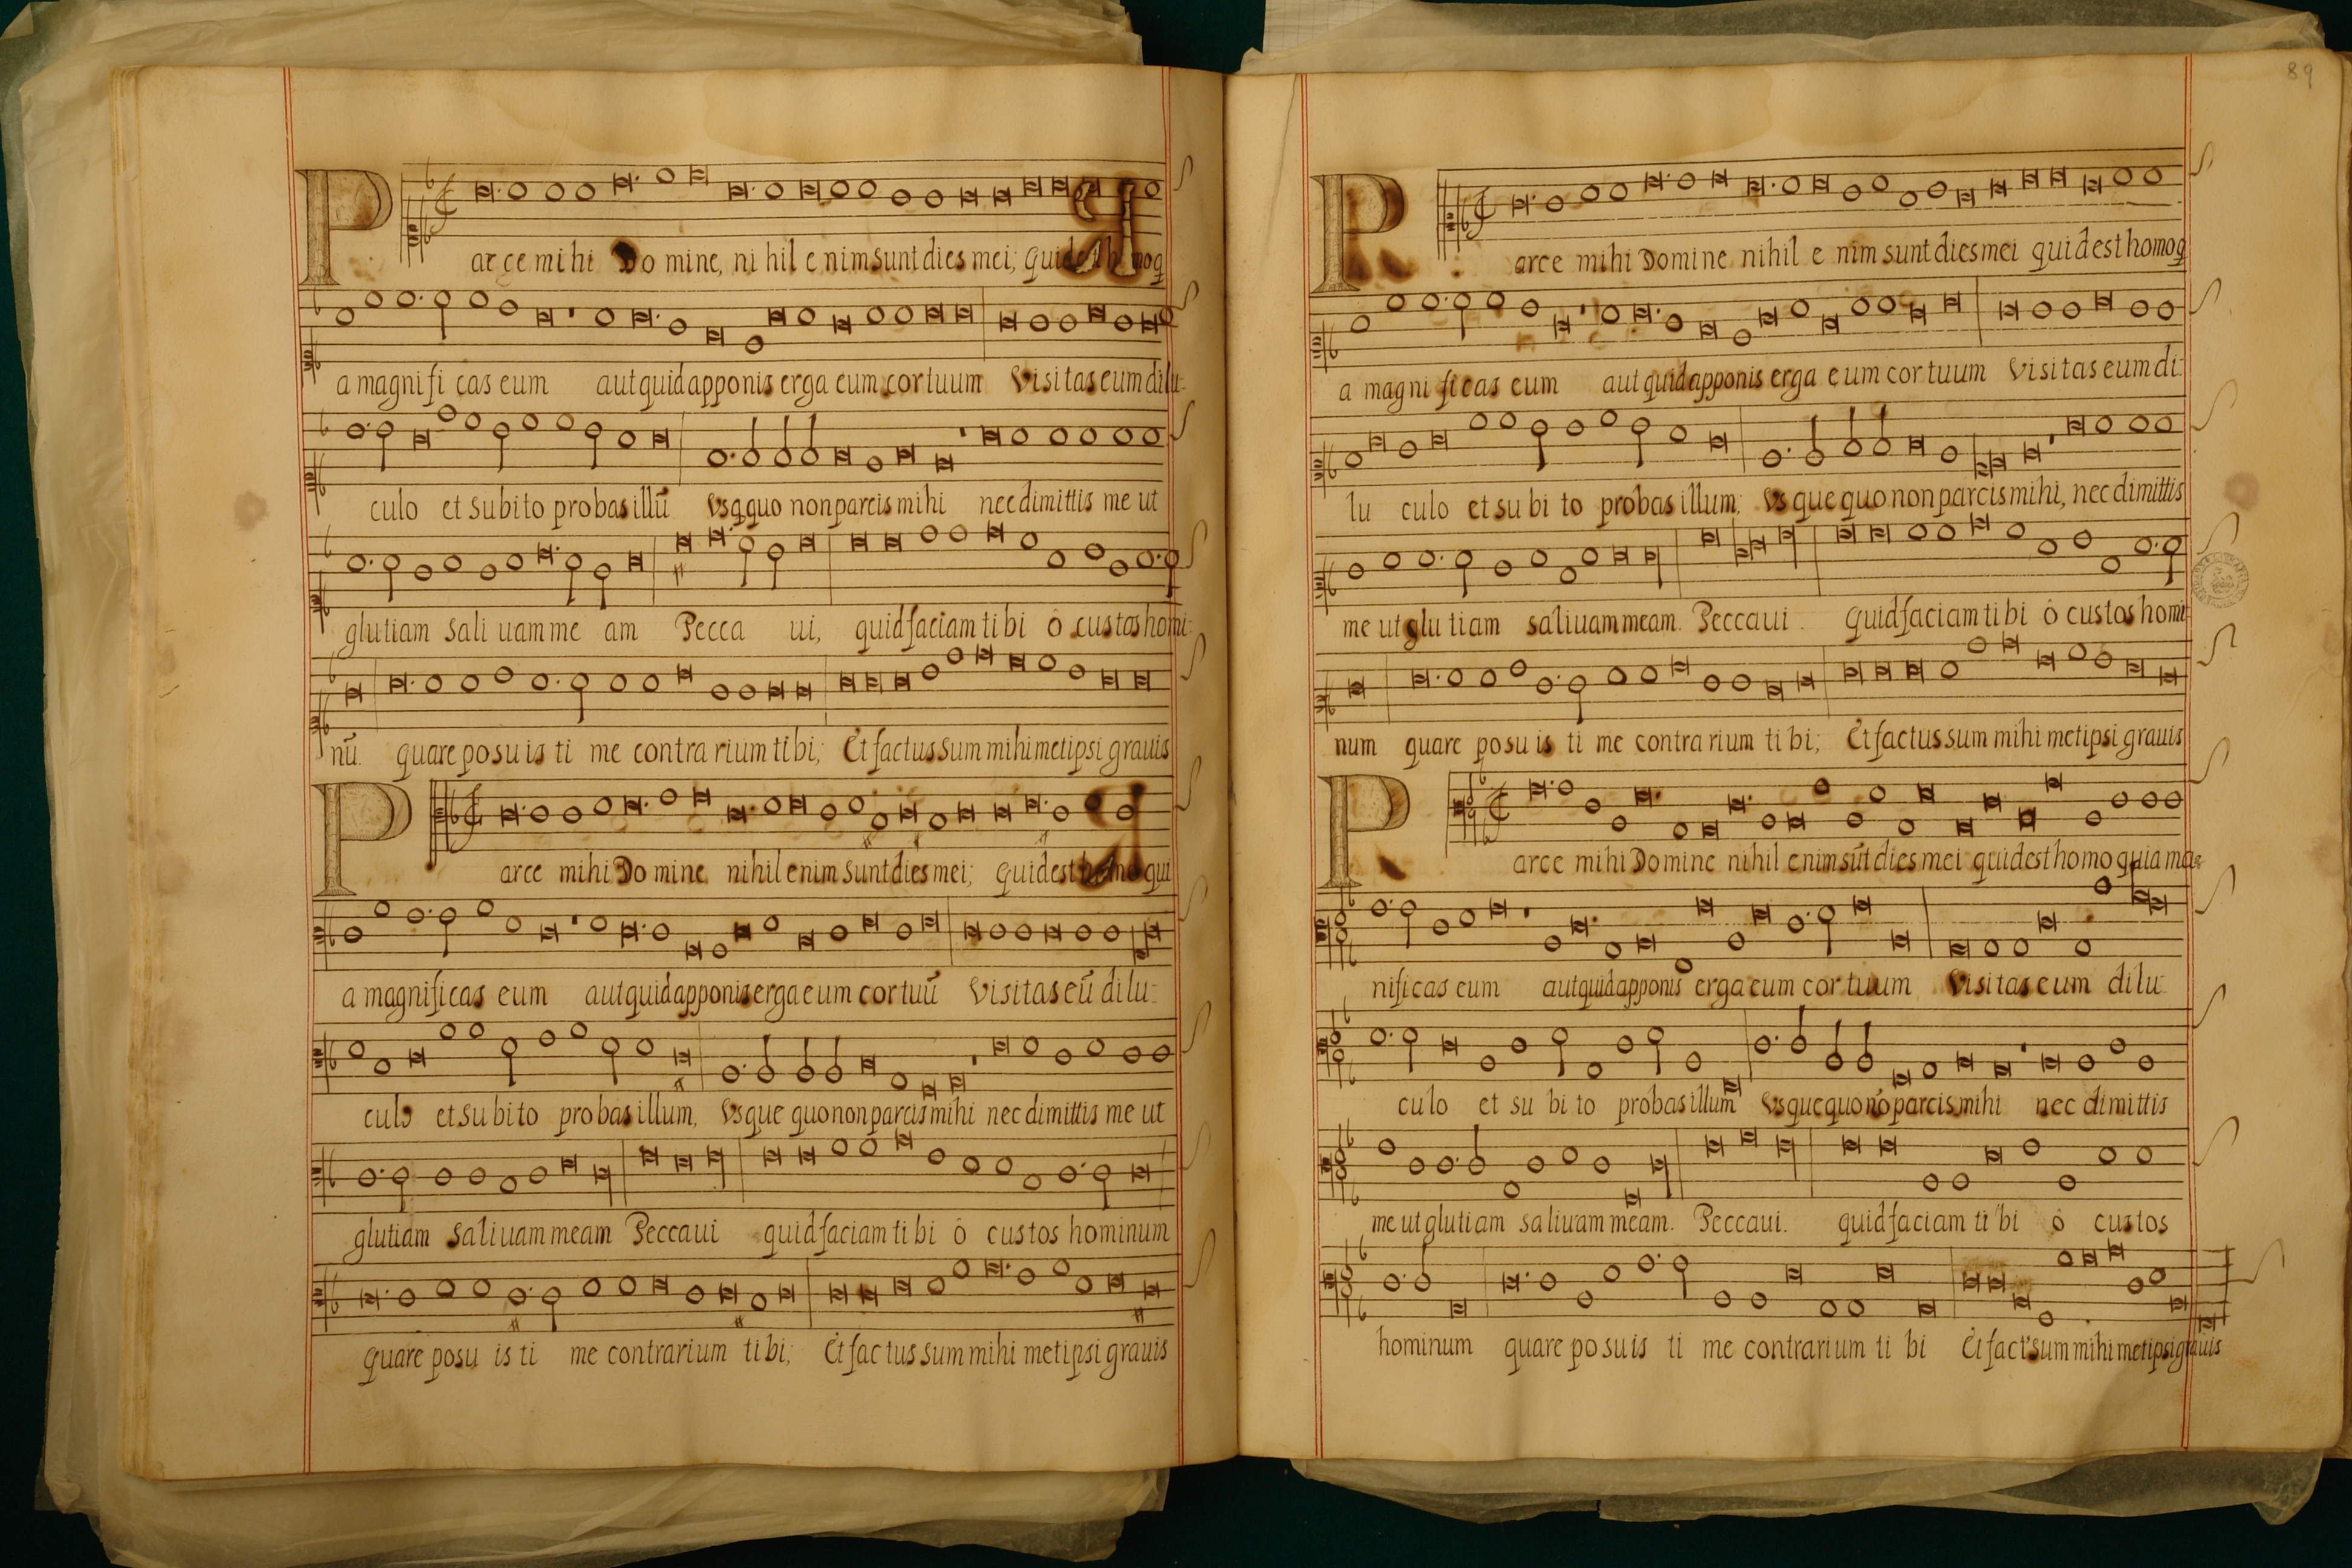 Parce mihi Domine, nihil enim sunt dies mei; quid est homo q
a magnificas eum aut quid apponis erga eum cor tuum Visitas eum dilu-
culo et subito probas illũ Vsq̃quo non parcis mihi nec dimittis me ut
glutiam saliuam meam Peccaui, quid faciam tibi ô custos homi-
nũ. quare posuisti me contrarium tibi; Et factus sum mihimetipsi grauis
Parce mihi Domine nihil enim sunt dies mei; quid est homo qui
a magnificas eum aut quid apponis erga eum cor tuũ Visitas eũ dilu-
culo et subito probas illum, Vsquequo non parcis mihi nec dimittis me ut
glutiam saliuam meam Peccaui quid faciam tibi ô custos hominum
quare posuisti me contrarium tibi; Et factus sum mihi metipsi grauis
89
Parce mihi Domine nihil enim sunt dies mei quid est homo q
a magnificas eum aut quid apponis erga eum cor tuum Visitas eum di-
lu culo et subito probas illum; Vsquequo non parcis mihi, nec dimittis
me ut glutiam saliuam meam. Peccaui. quid faciam tibi ô custos homi-
num quare posuisti me contrarium tibi; Et factus sum mihi metipsi grauis
Parce mihi Domine nihil enim sũt dies mei quid est homo quia mag-
nificas eum aut quid apponis erga eum cor tuum Visitas eum dilu-
culo et subito probas illum Vsquequo nõ parcis mihi nec dimittis
me ut glutiam saliuam meam. Peccaui. quid faciam tibi ô custos
hominum quare posuisti me contrarium tibi Et fact' sum mihi metipsi grauis